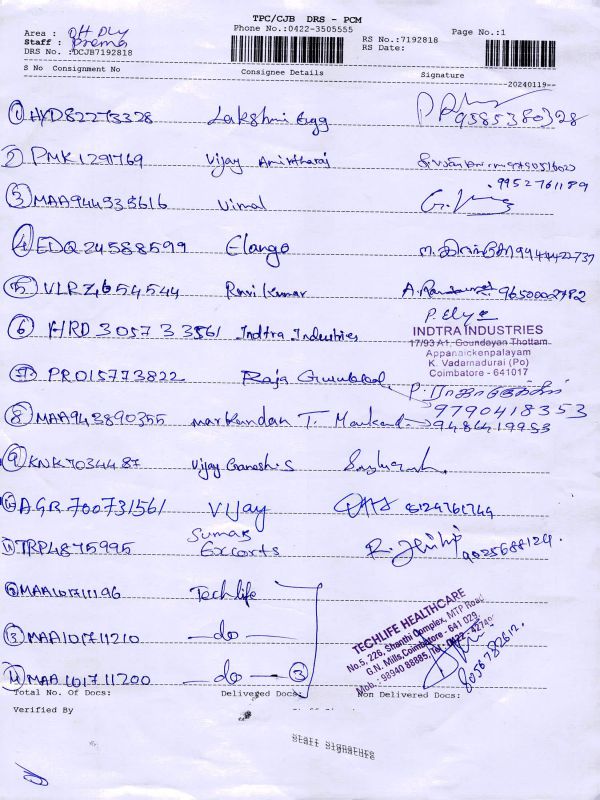 TPC/CJB DRS - PCM
Area : OH DLY Phone No.:0422-3505555 Page No.:1
Staff : Prema RS No.:7192818
DRS No. :DCJB7192818 RS Date:
S No Consignment No Consignee Details Signature
--20240119--
① HYD82273328 Lakshmi Egg 9385380328
② PMK1291769 Vijay Amirtharaj
③ MAA944535616 Vimal 9952761189
④ EDQ24588599 Elango 9944422737
⑤ VLRZ654544 Ravi Kumar 9650002782
⑥ HRD305733561 Indtra Industries
INDTRA INDUSTRIES
17/93 A1, Goundayan Thottam
Appanaickenpalayam
K. Vadamadurai (Po)
Coimbatore - 641017
⑦ PR015773822 Raja 9790418353
⑧ MAA943890355 Markandan T. 9486419953
⑨ KNK7034487 Vijay Ganesh.S
⑩ AGR700731561 Vijay 8124761744
⑪ TRP4875995 Suman Exports 9025688129
⑫ MAA101711196 Techlife
⑬ MAA101711210 —do—
⑭ MAA101711200 —do— ③
TECHLIFE HEALTHCARE
No.5, 226, Shanthi Complex, MTP Road
G.N. Mills, Coimbatore - 641 029
Mob.: 98940 88885, Tel: 0422
8056782612.
Total No. Of Docs: Delivered Docs: Non Delivered Docs:
Verified By
Staff Signature